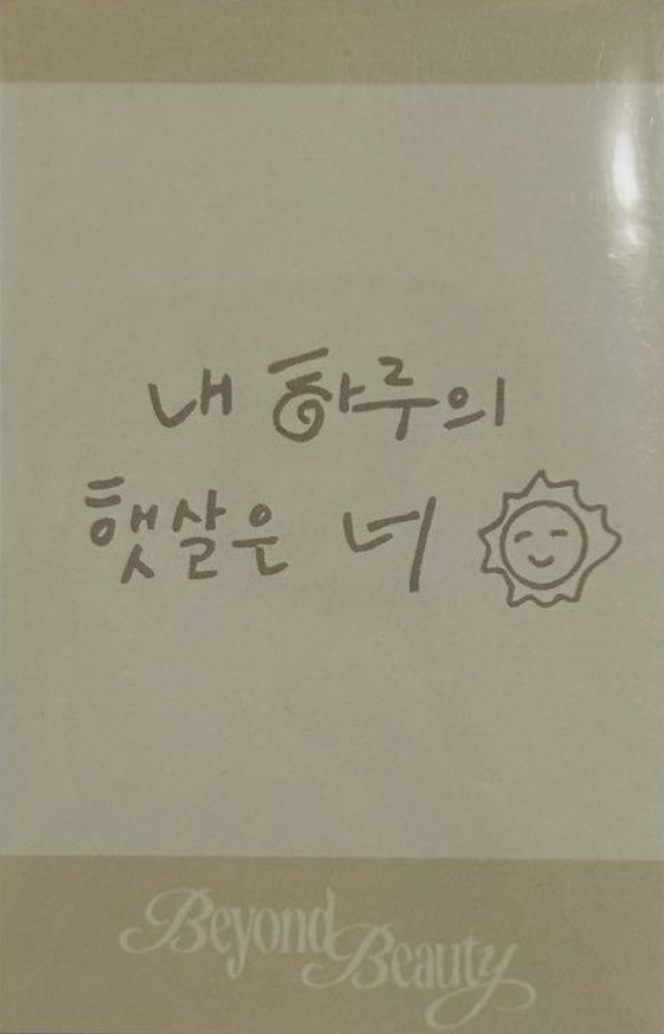 내 하루의
햇살은 너
Beyond
Beauty